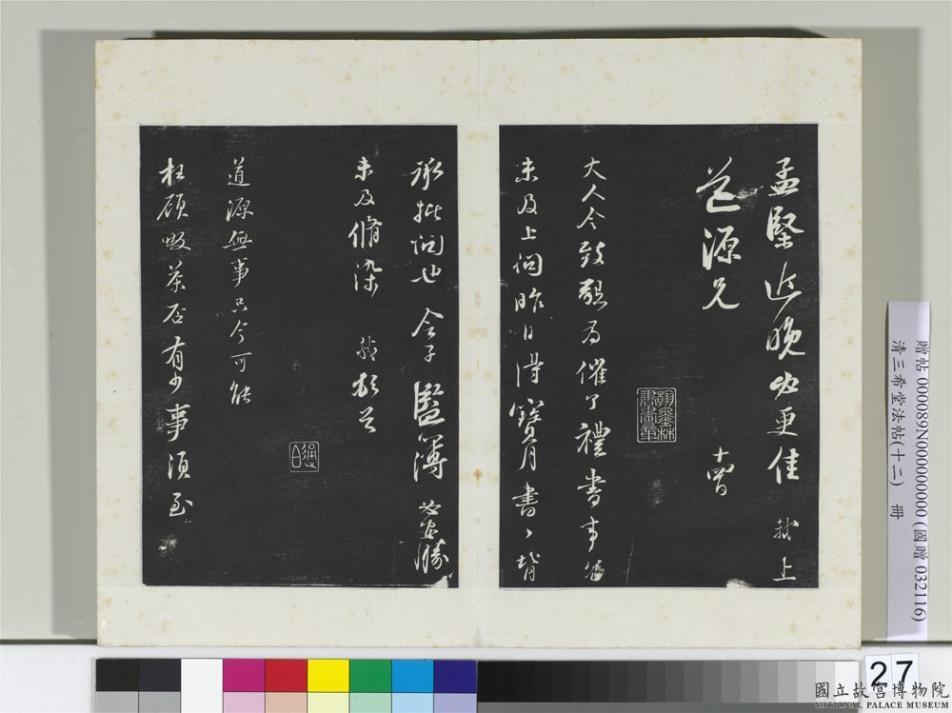 孟堅近晚必更佳 軾上
道源兄 十四
大人令致懇為催了禮書事冗
未及上問昨日得寶月書書背
承批問也令子監簿必安勝
未及脩染 軾頓首
道源無事只今可能
枉顧啜茶否有少事須至
贈帖 000089N000000000 (國贈 032116)
清三希堂法帖(十二) 冊
27
國立故宮博物院
NATIONAL PALACE MUSEUM